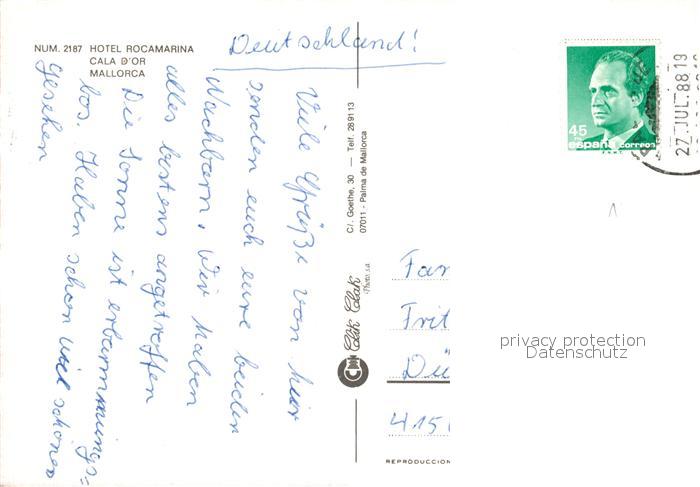 NUM. 2187 HOTEL ROCAMARINA
CALA D'OR
MALLORCA
Deutschland!
Viele Grüße von hier
senden euch eure beiden
Nachbarn. Wir haben
alles bestens angetroffen
Die Sonne ist erbarmungs=
los. Haben schon viel schönes
gesehen
C/. Goethe, 30 — Telf. 289113
07011 - Palma de Mallorca
Clik Clak
Photo s.a.
45
españa correos
F.N.M.T.
27 JUL. 88 19
Fam
Frit
Dü
415
REPRODUCCION
privacy protection
Datenschutz